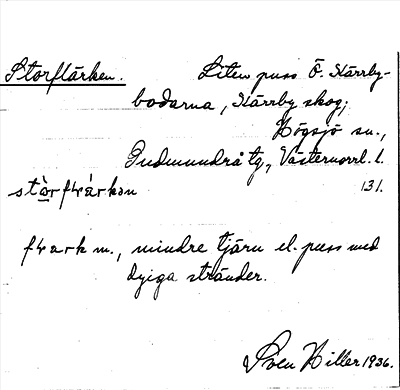 Storflärken. Liten puss Ö. Kärrby-
bodarna, Kärrby skog;
Högsjö sn.,
Gudmundrå tg, Västernorrl. l.
stɷ̀rfɫárkən 131.
fɫark m., mindre tjärn el. puss med
dyiga stränder.
Sven Hiller 1936.